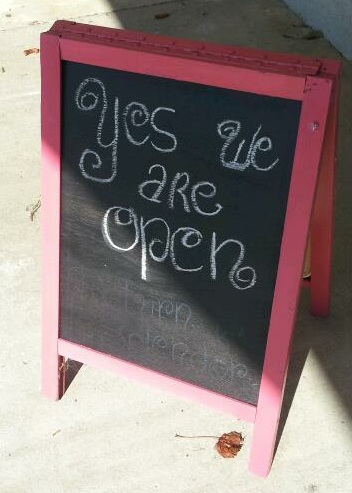 Yes We
are
open